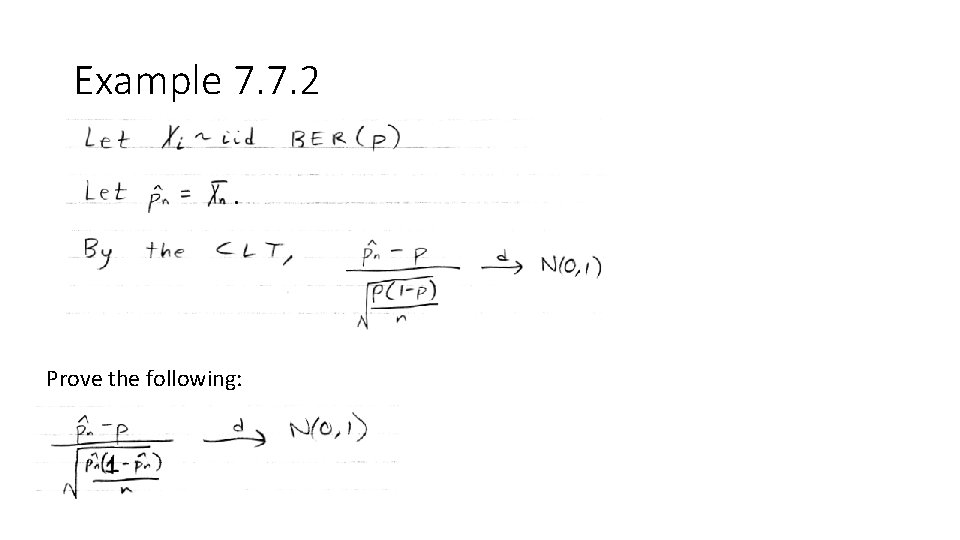 Example 7.7.2
Let Xᵢ ~ iid BER(p)
Let p̂ₙ = X̄ₙ.
By the CLT, (p̂ₙ - p) / √(p(1-p)/n) →ᵈ N(0,1)
Prove the following:
(p̂ₙ - p) / √(p̂ₙ(1-p̂ₙ)/n) →ᵈ N(0,1)